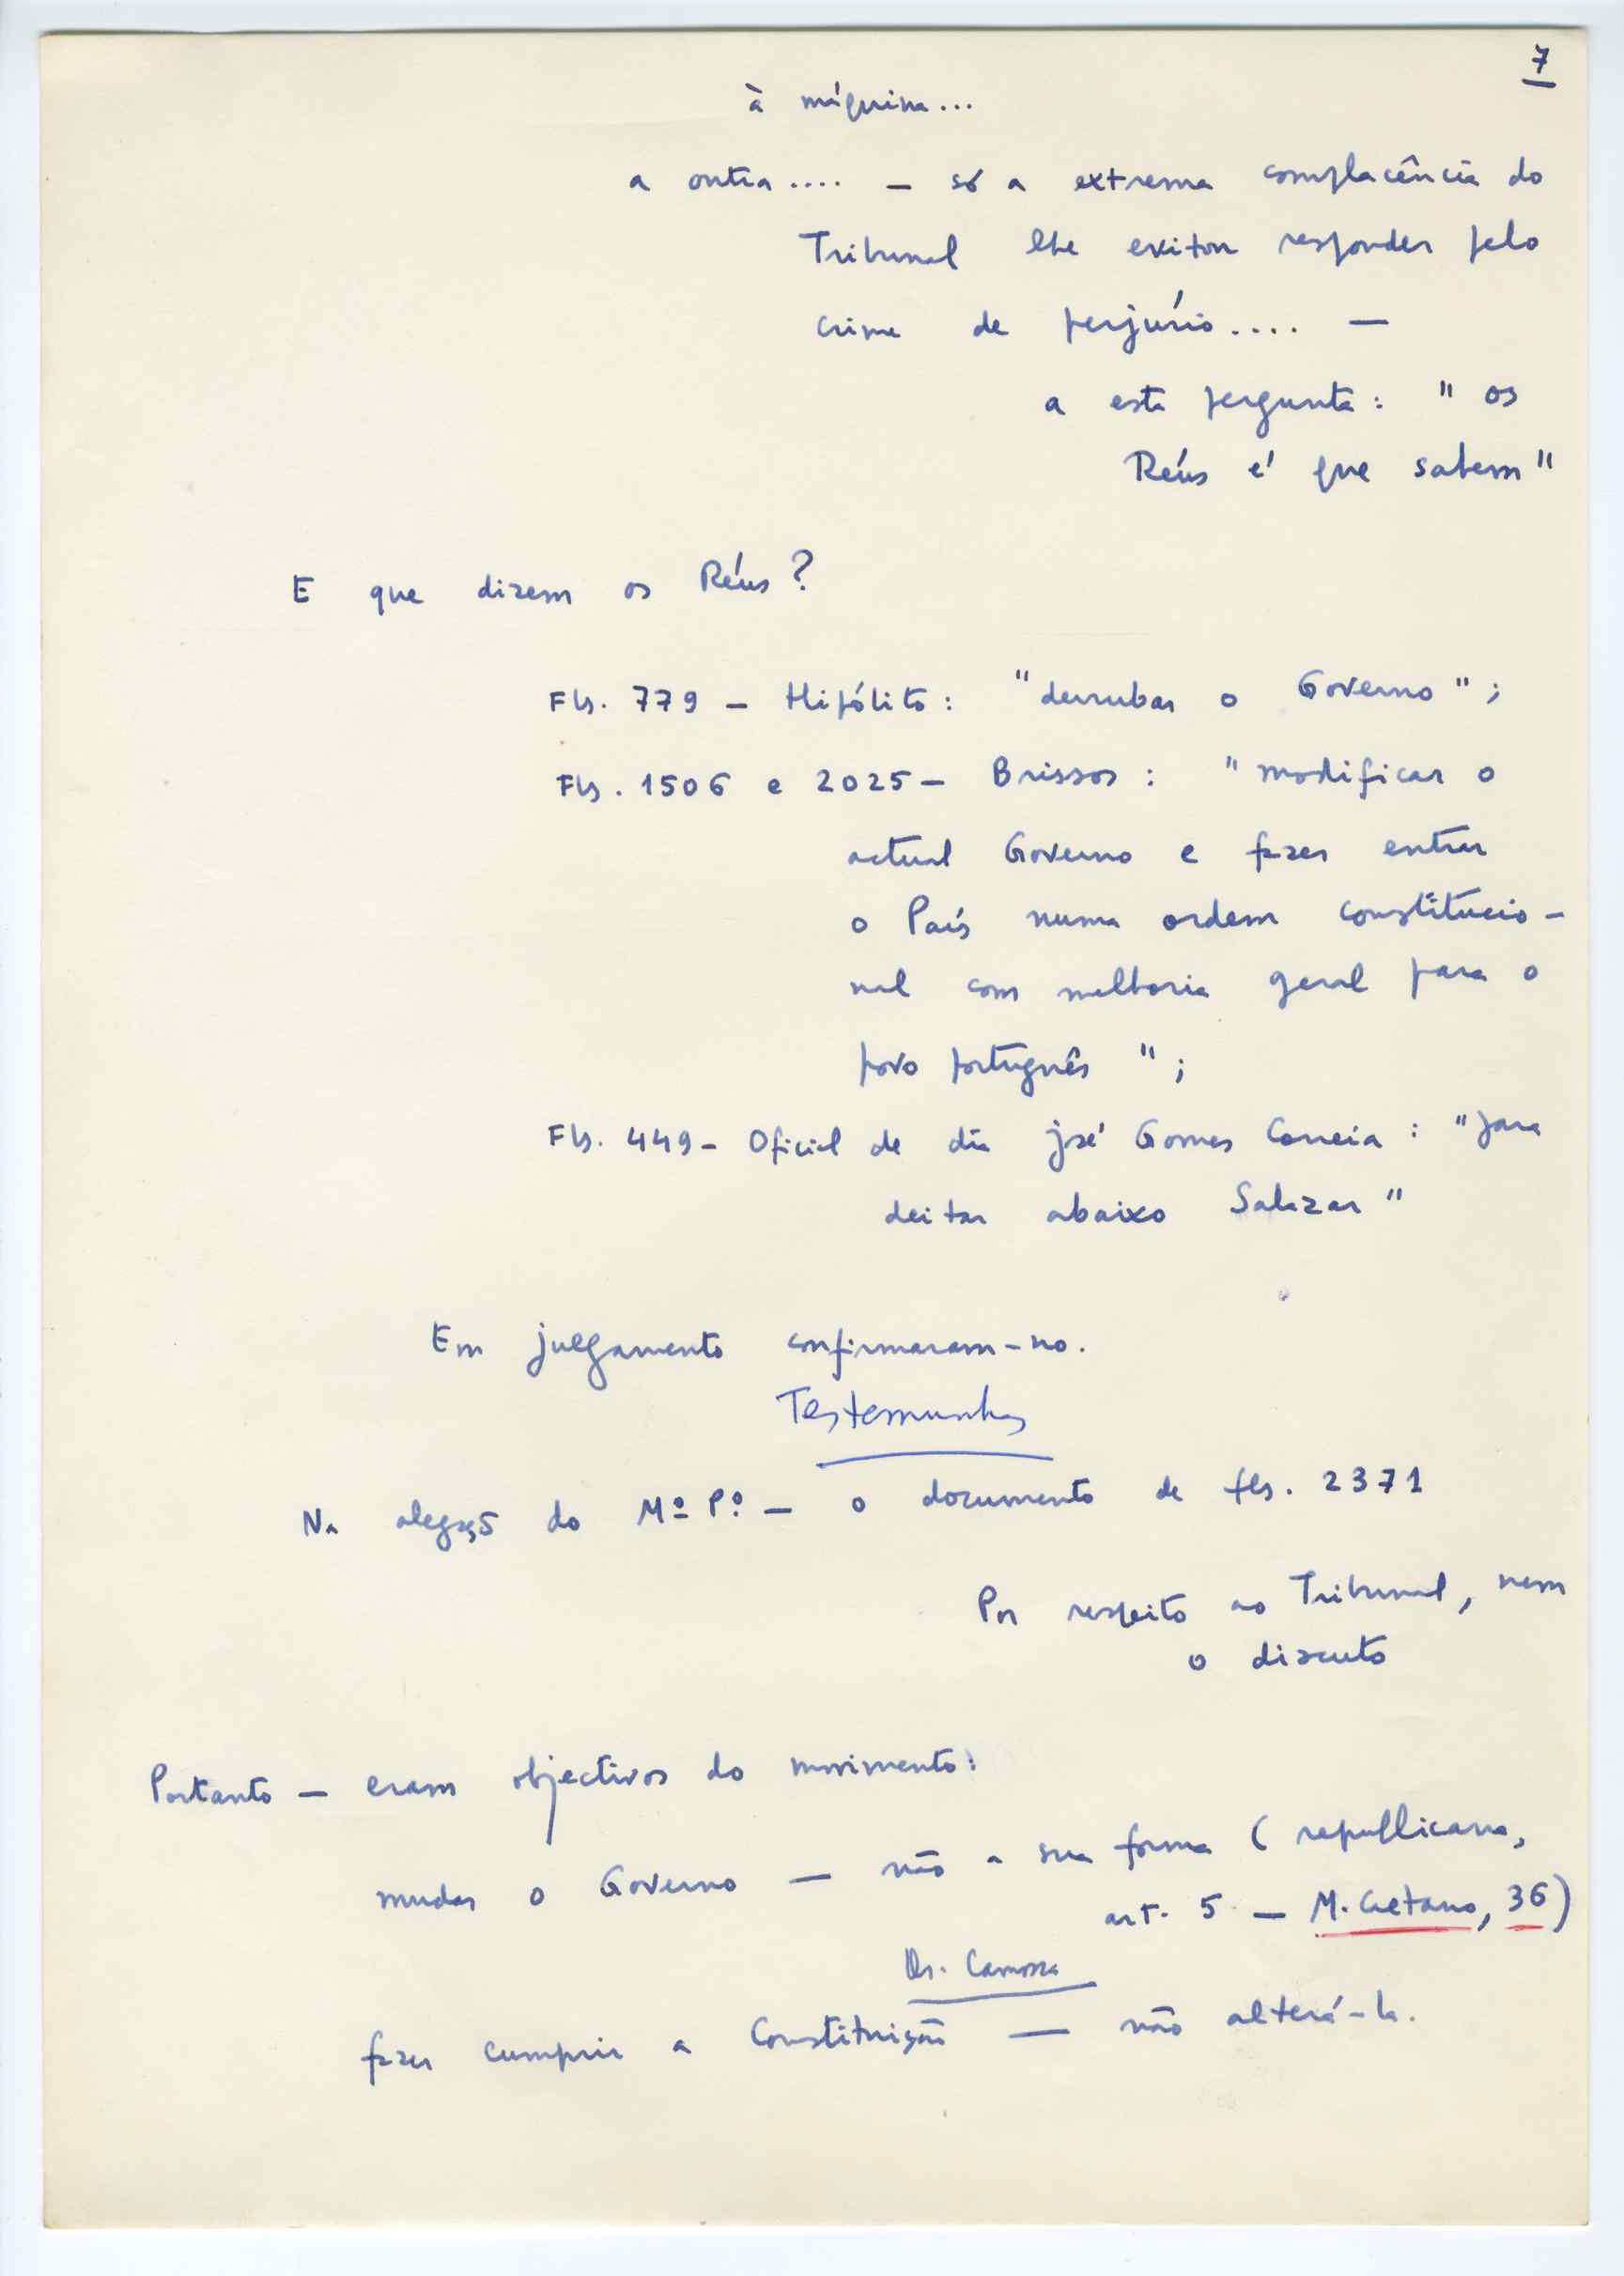 7
à máquina...
a outra.... — só a extrema complacência do
Tribunal lhe evitou responder pelo
crime de perjúrio.... —
a esta pergunta: " os
Réus é que sabem"
E que dizem os Réus?
Fls. 779 — Hipólito: "derrubar o Governo";
Fls. 1506 e 2025 — Brissos: "modificar o
actual Governo e fazer entrar
o País numa ordem constitucio-
nal com melhoria geral para o
povo português";
Fls. 449 - Oficial de dia José Gomes Correia: "para
deitar abaixo Salazar"
Em julgamento confirmaram-no.
Testemunhas
Na alegação do Mº Pº — o documento de fls. 2371
Por respeito ao Tribunal, nem
o discuto
Portanto — eram objectivos do movimento:
mudar o Governo — não a sua forma (republicana,
art. 5 — M. Caetano, 36)
Dr. Camossa
fazer cumprir a Constituição — não alterá-la.